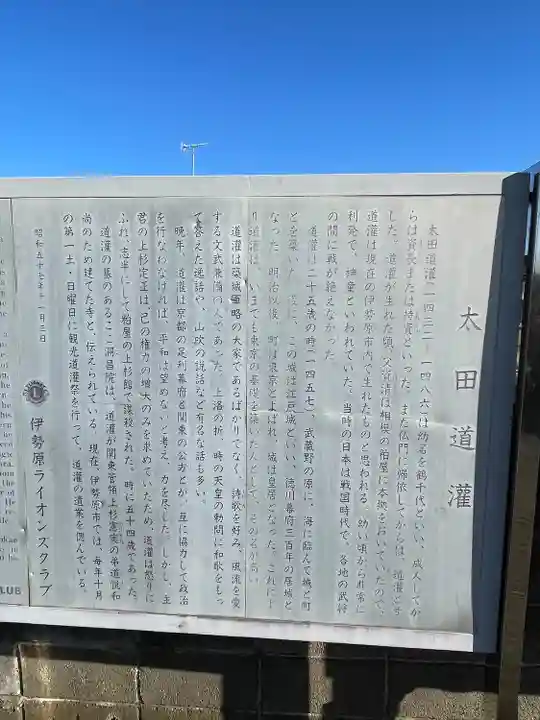 太田道灌
太田道灌(一四三二―一四八六)は幼名を鶴千代といい、成人してか
らは資長または持資といった。また仏門に帰依してからは、道灌と号
した。道灌が生れた頃、父資清は相模の粕屋に本拠をおいていたので、
道灌は現在の伊勢原市内で生れたものと思われる。幼い頃から非常に
利発で、神童といわれていた。当時の日本は戦国時代で、各地の武将
の間に戦が絶えなかった。
道灌は二十五歳の時(一四五七)、武蔵野の原に、海に臨んで城と町
とを築いた。後に、この城は江戸城といい、徳川幕府三百年の居城と
なった。明治以後、町は東京とよばれ、城は皇居となった。これによ
り道灌は、いまでも東京の基礎を築いた人として、その名が高い。
道灌は築城軍略の大家であるばかりでなく、詩歌を好み、風流を愛
する文武兼備の人であった。上洛の折、時の天皇の勅問に和歌をもっ
て答えた逸話や、山吹の説話など有名な話も多い。
晩年、道灌は京都の足利幕府と関東の公方とが、互に協力して政治
を行なわなければ、平和は望めないと考え、力を尽した。しかし、主
君の上杉定正は、己の権力の増大のみを求めていたため、道灌は怒りに
ふれ、志半ばにして粕屋の上杉館で謀殺された。時に五十四歳であった。
道灌の墓のあるここ洞昌院は、道灌が関東管領上杉憲実の弟道悦和
尚のため建てた寺と、伝えられている。現在、伊勢原市では、毎年十月
の第一土・日曜日に観光道灌祭を行って、道灌の遺業を偲んでいる。
昭和五十七年十一月三日
伊勢原ライオンズクラブ
CLUB